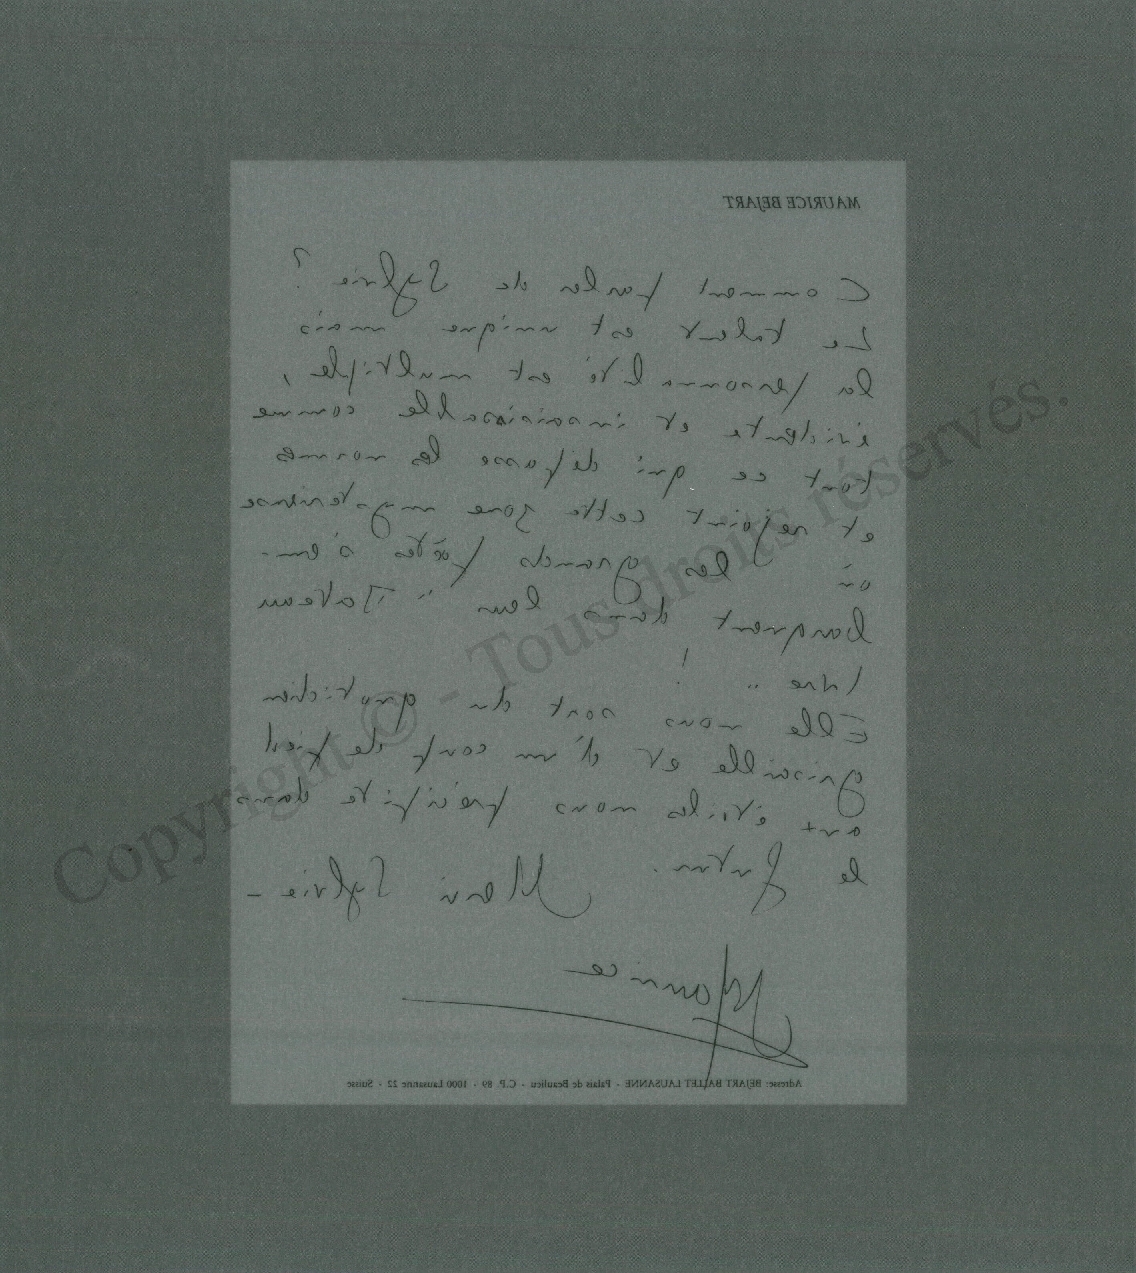 MAURICE BEJART
Comment parler de Sylvie ?
Le talent est unique mais
la personnalité est multiple,
évidente et insaisissable comme
tout ce qui dépasse les normes
et rejoint cette zone mystérieuse
où les grands poètes s'em-
barquent dans leur " Bateau
Ivre " !
Elle nous sort du quotidien
grisaille et d'un coup de pied
aux étoiles nous précipite dans
le futur.
Merci Sylvie -
Maurice
Adresse: BEJART BALLET LAUSANNE - Palais de Beaulieu - C.P. 89 - 1000 Lausanne 22 - Suisse
Copyright © - Tous droits réservés.